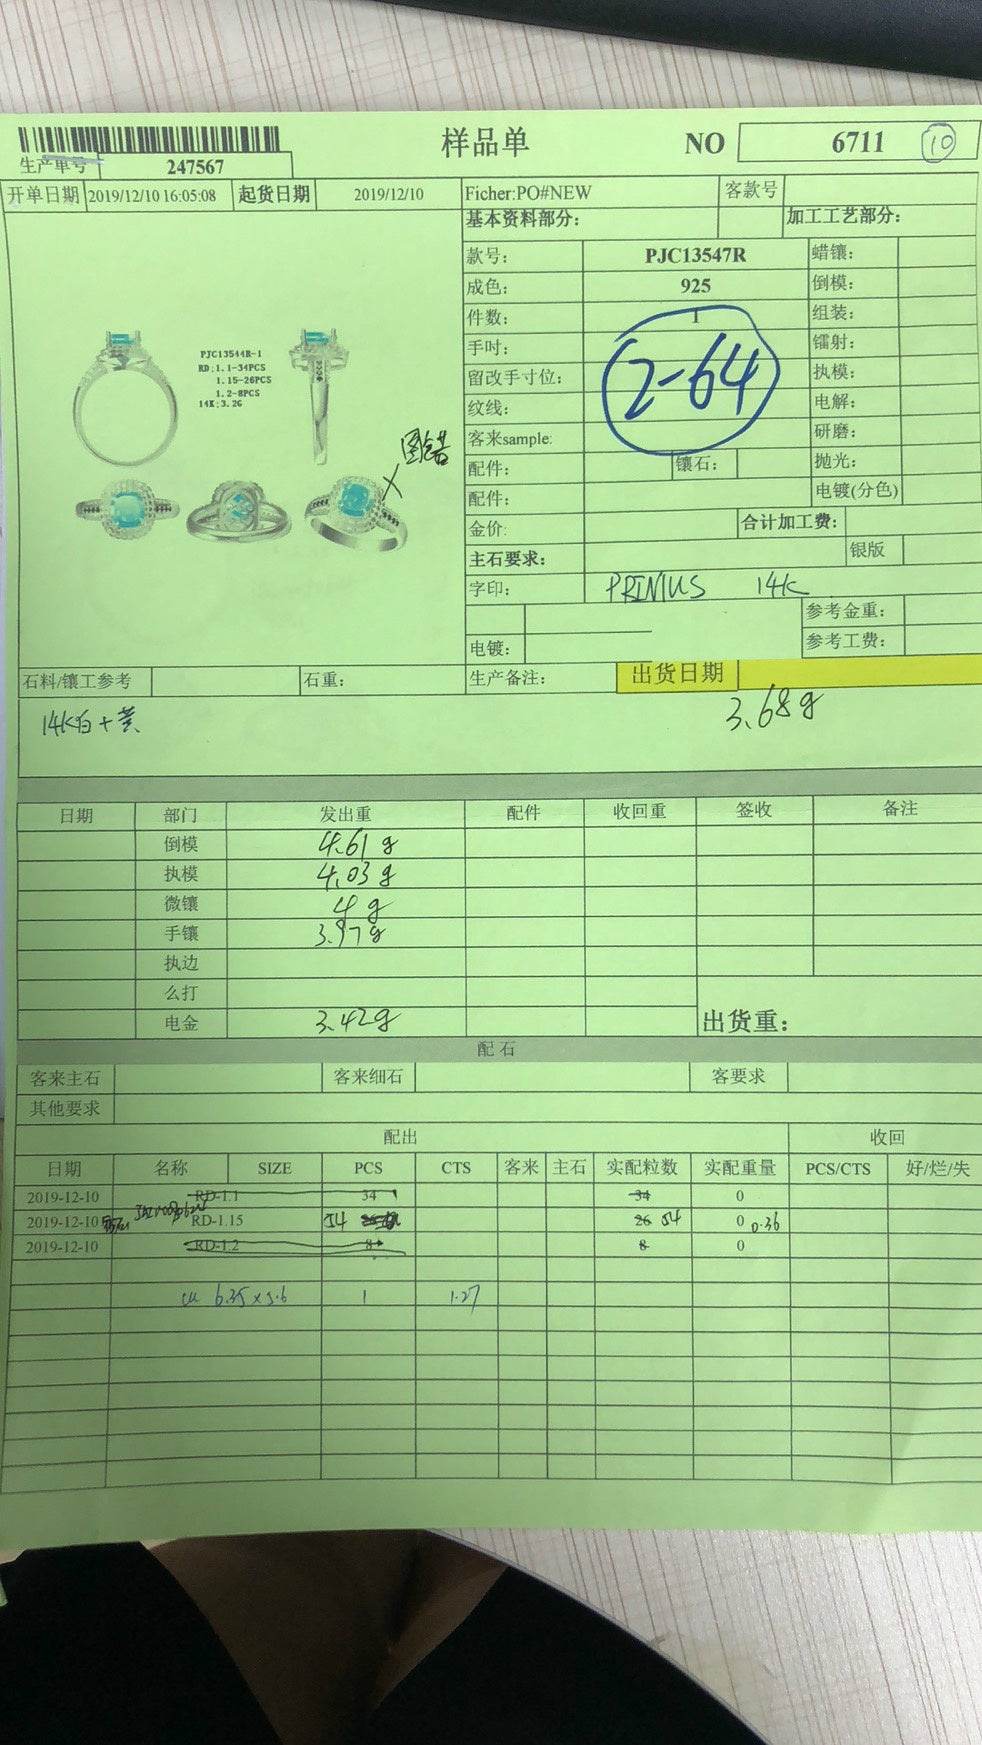 样品单 NO 6711 10
生产单号 247567
开单日期 2019/12/10 16:05:08 起货日期 2019/12/10 Ficher:PO#NEW 客款号
基本资料部分： 加工工艺部分：
款号： PJC13547R 蜡镶：
成色： 925 倒模：
件数： 1 组装：
手吋： 镭射：
2-64
留改手寸位： 执模：
纹线： 电解：
客来sample: 研磨：
配件： 镶石： 抛光：
配件： 电镀(分色)
金价: 合计加工费：
主石要求： 银版
字印： 14K
参考金重：
电镀： 参考工费：
PJC13544R-1
RD:1.1-34PCS
1.15-26PCS
1.2-8PCS
14K:3.2G
图错
石料/镶工参考 石重： 生产备注： 出货日期
14K白+黄 3.68g
日期 部门 发出重 配件 收回重 签收 备注
倒模 4.61 g
执模 4.03 g
微镶 4 g
手镶 3.97 g
执边
么打
电金 3.42g 出货重：
配 石
客来主石 客来细石 客要求
其他要求
配出 收回
日期 名称 SIZE PCS CTS 客来 主石 实配粒数 实配重量 PCS/CTS 好/烂/失
2019-12-10 RD-1.1 34 34 0
2019-12-10 RD-1.15 54 26 54 0 0.36
2019-12-10 RD-1.2 8 8 0
6.35×5.6 1 1.27